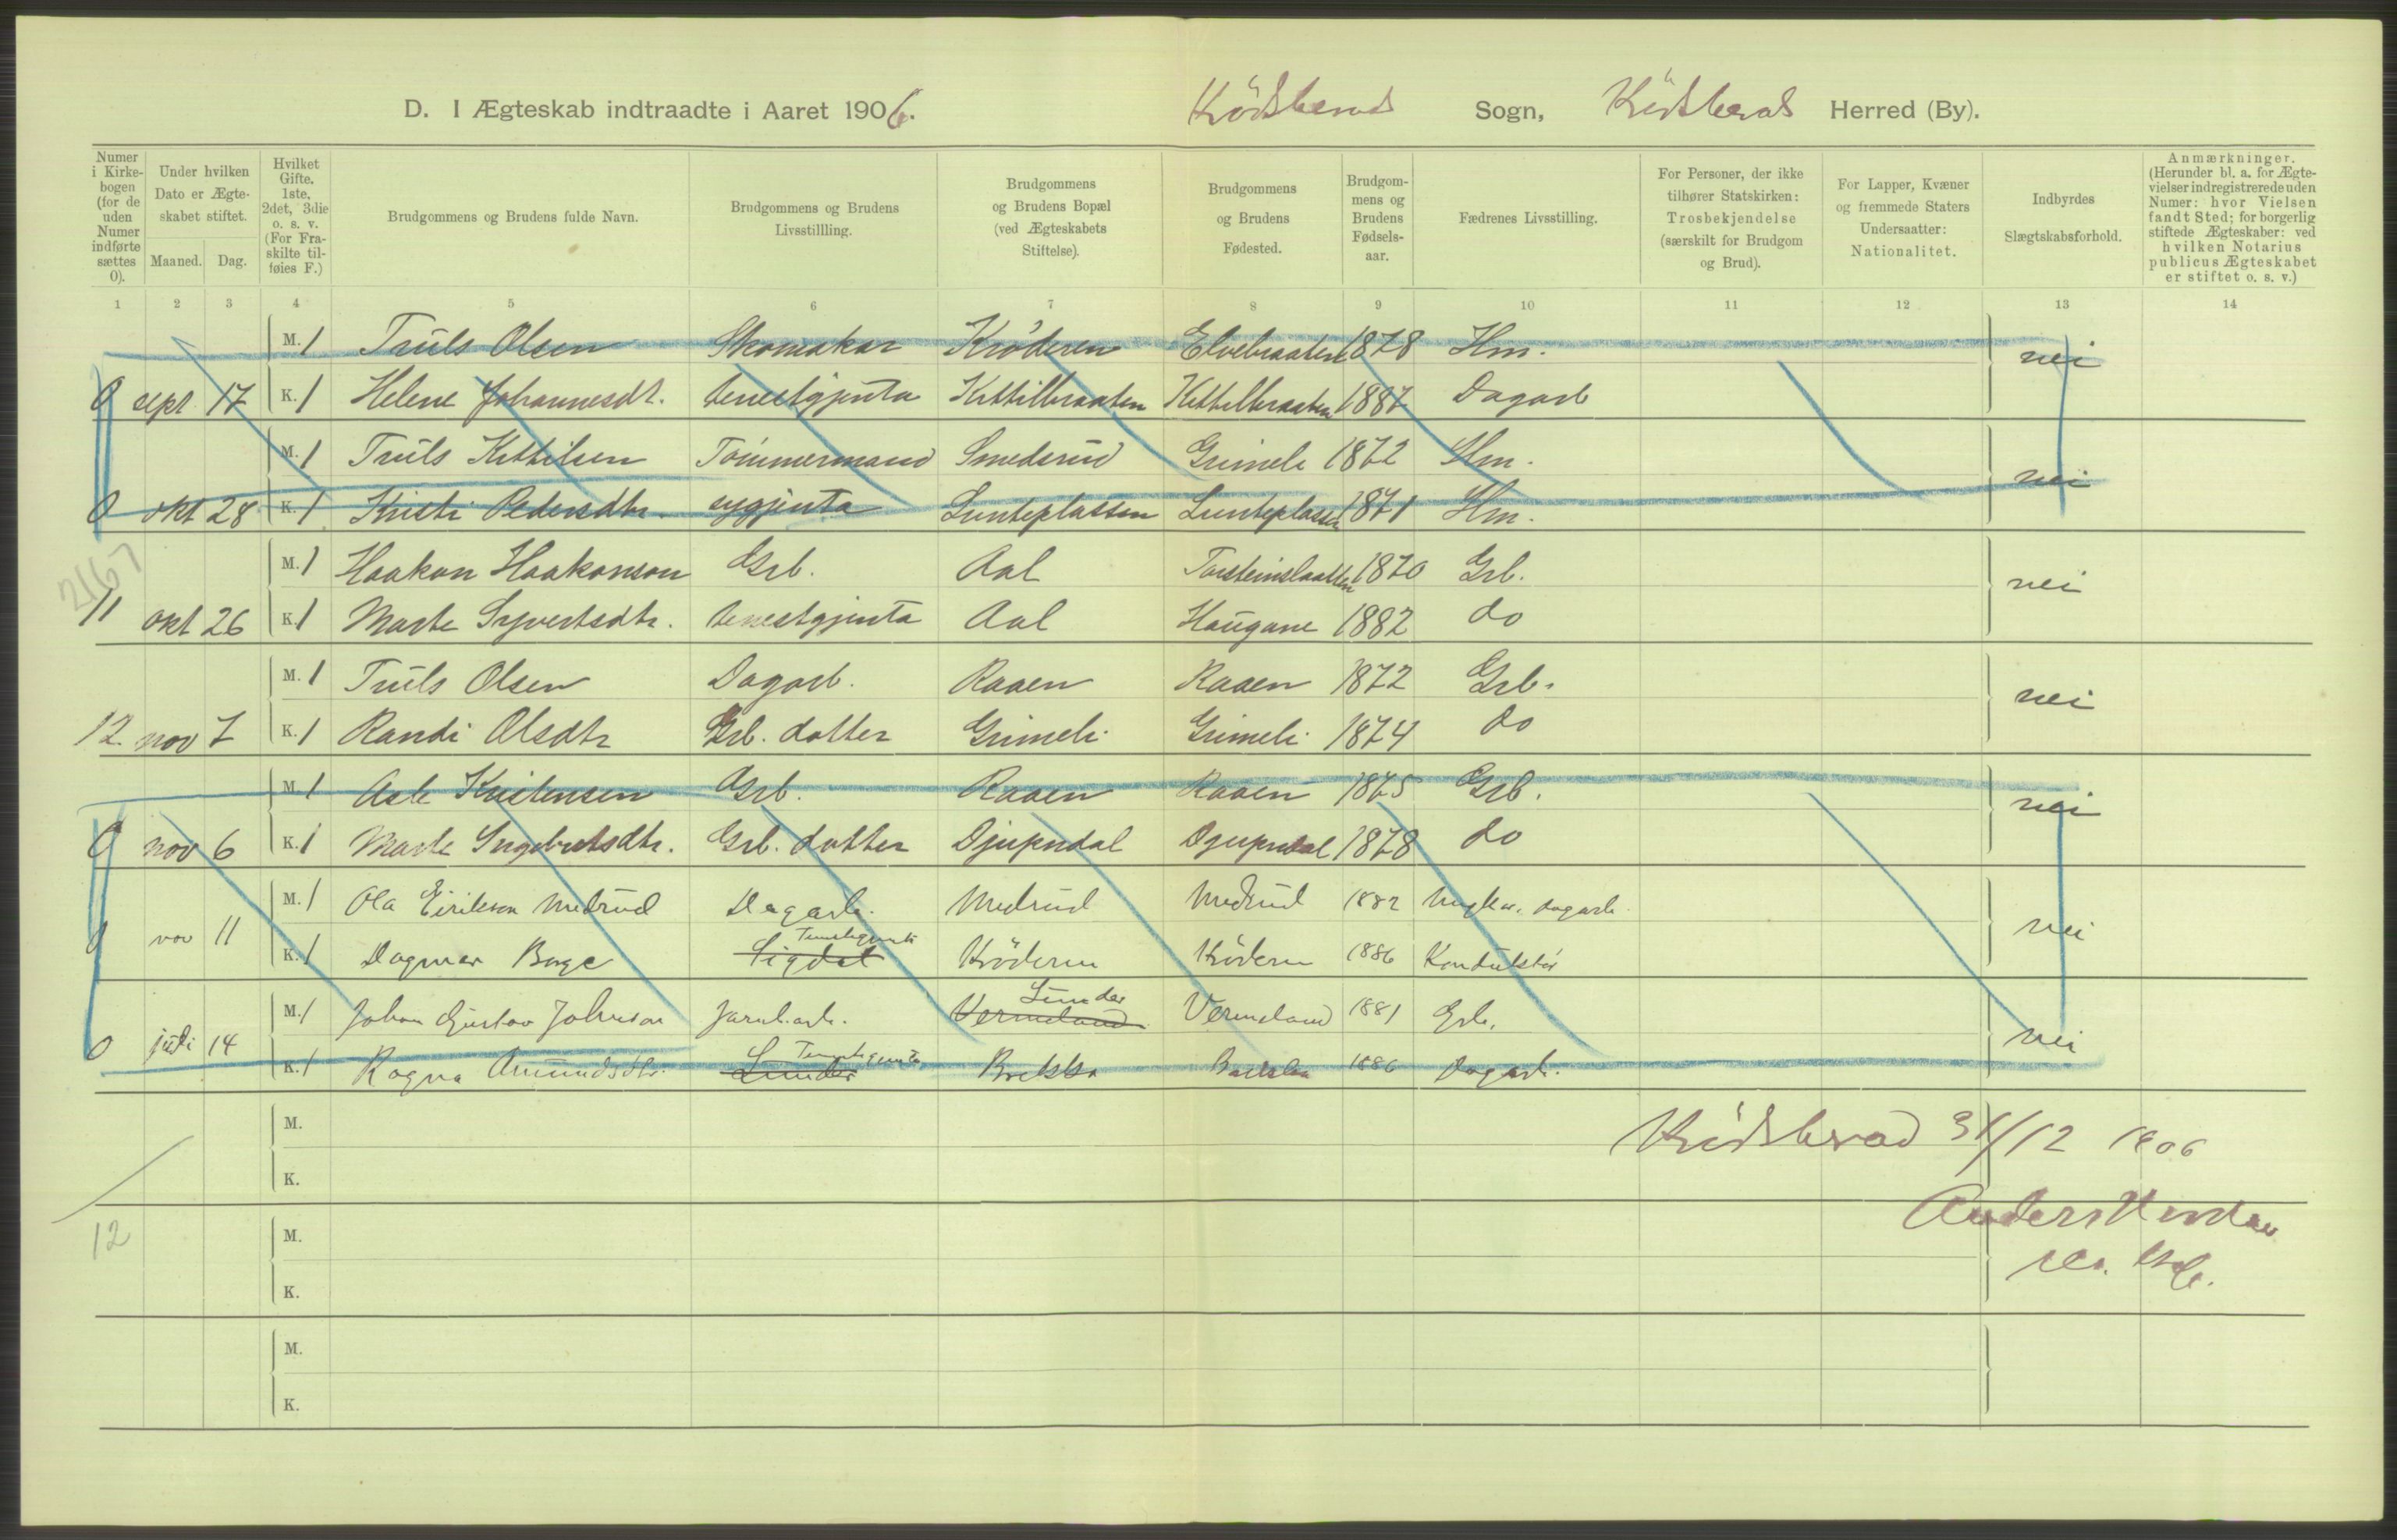 D. I Ægteskab indtraadte i Aaret 1906. Kródsherad Sogn, Kródsherad Herred (By).
Numer i Kirkebogen (for de uden Numer indførte sættes 0).
Under hvilken Dato er Ægteskabet stiftet.
Maaned. Dag.
Hvilket Gifte. 1ste, 2det, 3die o. s. v. (For Fraskilte tilføies F.)
Brudgommens og Brudens fulde Navn.
Brudgommens og Brudens Livsstillling.
Brudgommens og Brudens Bopæl (ved Ægteskabets Stiftelse).
Brudgommens og Brudens Fødested.
Brudgommens og Brudens Fødselsaar.
Fædrenes Livsstilling.
For Personer, der ikke tilhører Statskirken: Trosbekjendelse (særskilt for Brudgom og Brud).
For Lapper, Kvæner og fremmede Staters Undersaatter: Nationalitet.
Indbyrdes Slægtskabsforhold.
Anmærkninger. (Herunder bl. a. for Ægtevielser indregistrerede uden Numer: hvor Vielsen fandt Sted; for borgerlig stiftede Ægteskaber: ved hvilken Notarius publicus Ægteskabet er stiftet o. s. v.)
1 2 3 4 5 6 7 8 9 10 11 12 13 14
M. 1 Truls Olsen Skomakar Króderen Elvebraaten 1878 Hm. nei
0 sept 17 K. 1 Helene Johannesdt. tenestgjenta Kittilbraaten Kittilbraaten 1887 Dagarb
M. 1 Truls Kittilsen Tómmermand Smederud Grimeli 1872 Hm. nei
0 okt 28 K. 1 Kristi Pedersdtr. sygjenta Lunteplassen Lunteplassen 1871 Hm.
2167
M. 1 Haakon Haakonson Grb. Aal Torsteinslaatten 1870 Grb. nei
11 okt 26 K. 1 Marte Syvertsdtr. tenestgjenta Aal Haugane 1882 do
M. 1 Truls Olsen Dagarb. Raaen Raaen 1872 Grb. nei
12 nov 7 K. 1 Randi Olsdtr Grb. dotter Grimeli Grimeli 1874 do
M. 1 Asle Kristensen Grb. Raaen Raaen 1875 Grb. nei
0 nov 6 K. 1 Marte Ingebretsdtr. Grb. dotter Djupndal Djupndal 1878 do
M. 1 Ola Eirikson Medrud Dagarb. Medrud Medrud 1882 dagarb. nei
0 nov 11 K. 1 Dagmar Berge Sigdal Tenestgjenta Króderen Króderen 1886 Konduktór
M. 1 Johan Gustav Johnson Jarnb.arb. Vermeland Lunder Vermeland 1881 Grb. nei
0 juli 14 K. 1 Ragna Amundsdtr. Lunder Tenestgjenta Brekka Brekka 1886 Dagarb.
M.
K.
Kródsherad 31/12 1906
12
M.
K.
Anders
M.
K.